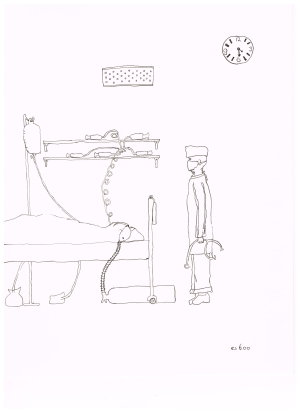 e.s 6.00